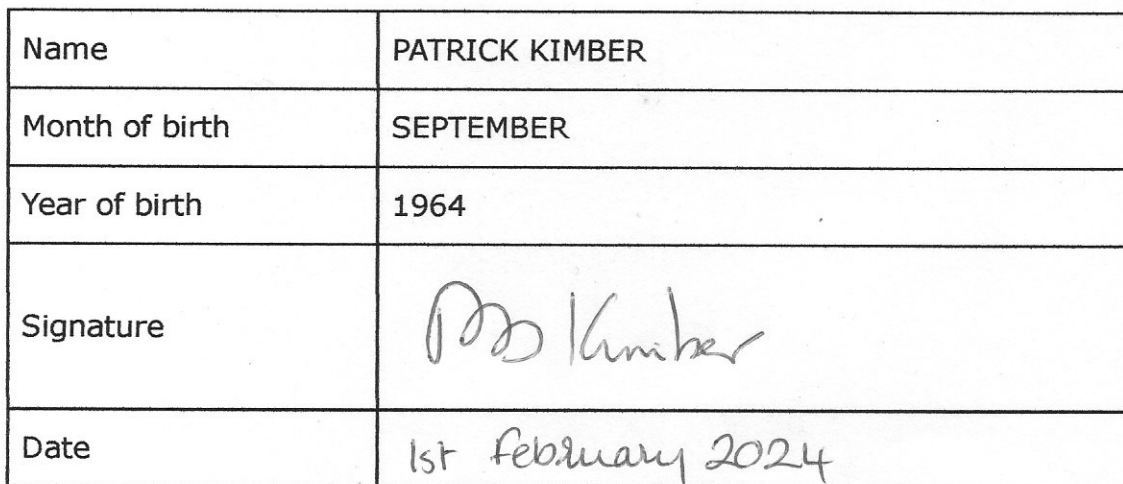 Name PATRICK KIMBER
Month of birth SEPTEMBER
Year of birth 1964
Signature Kimber
Date 1st February 2024